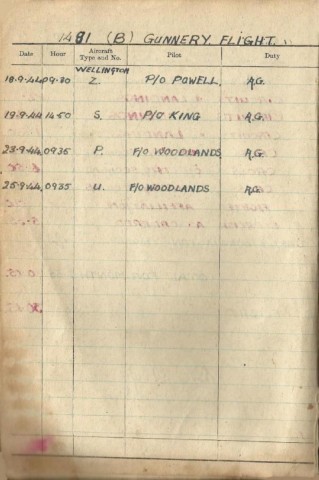 1481 (B) GUNNERY FLIGHT.
Date Hour Aircraft Type and No. Pilot Duty
WELLINGTON
18.9.44 09.30 Z. P/O POWELL. A.G.
19.9.44 14.50 S. P/O KING A.G.
23.9.44. 0935 P. F/O WOODLANDS A.G.
25.9.44. 0935 U. F/O WOODLANDS A.G.